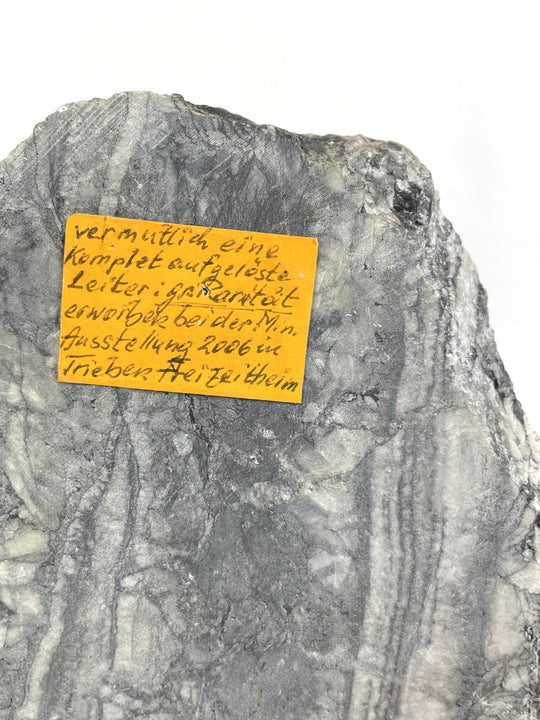 vermutlich eine
Komplet aufgelöste
Leiter: gr. Rarität
erworben bei der M.n.
Ausstellung 2006 in
Trieben Freizeitheim